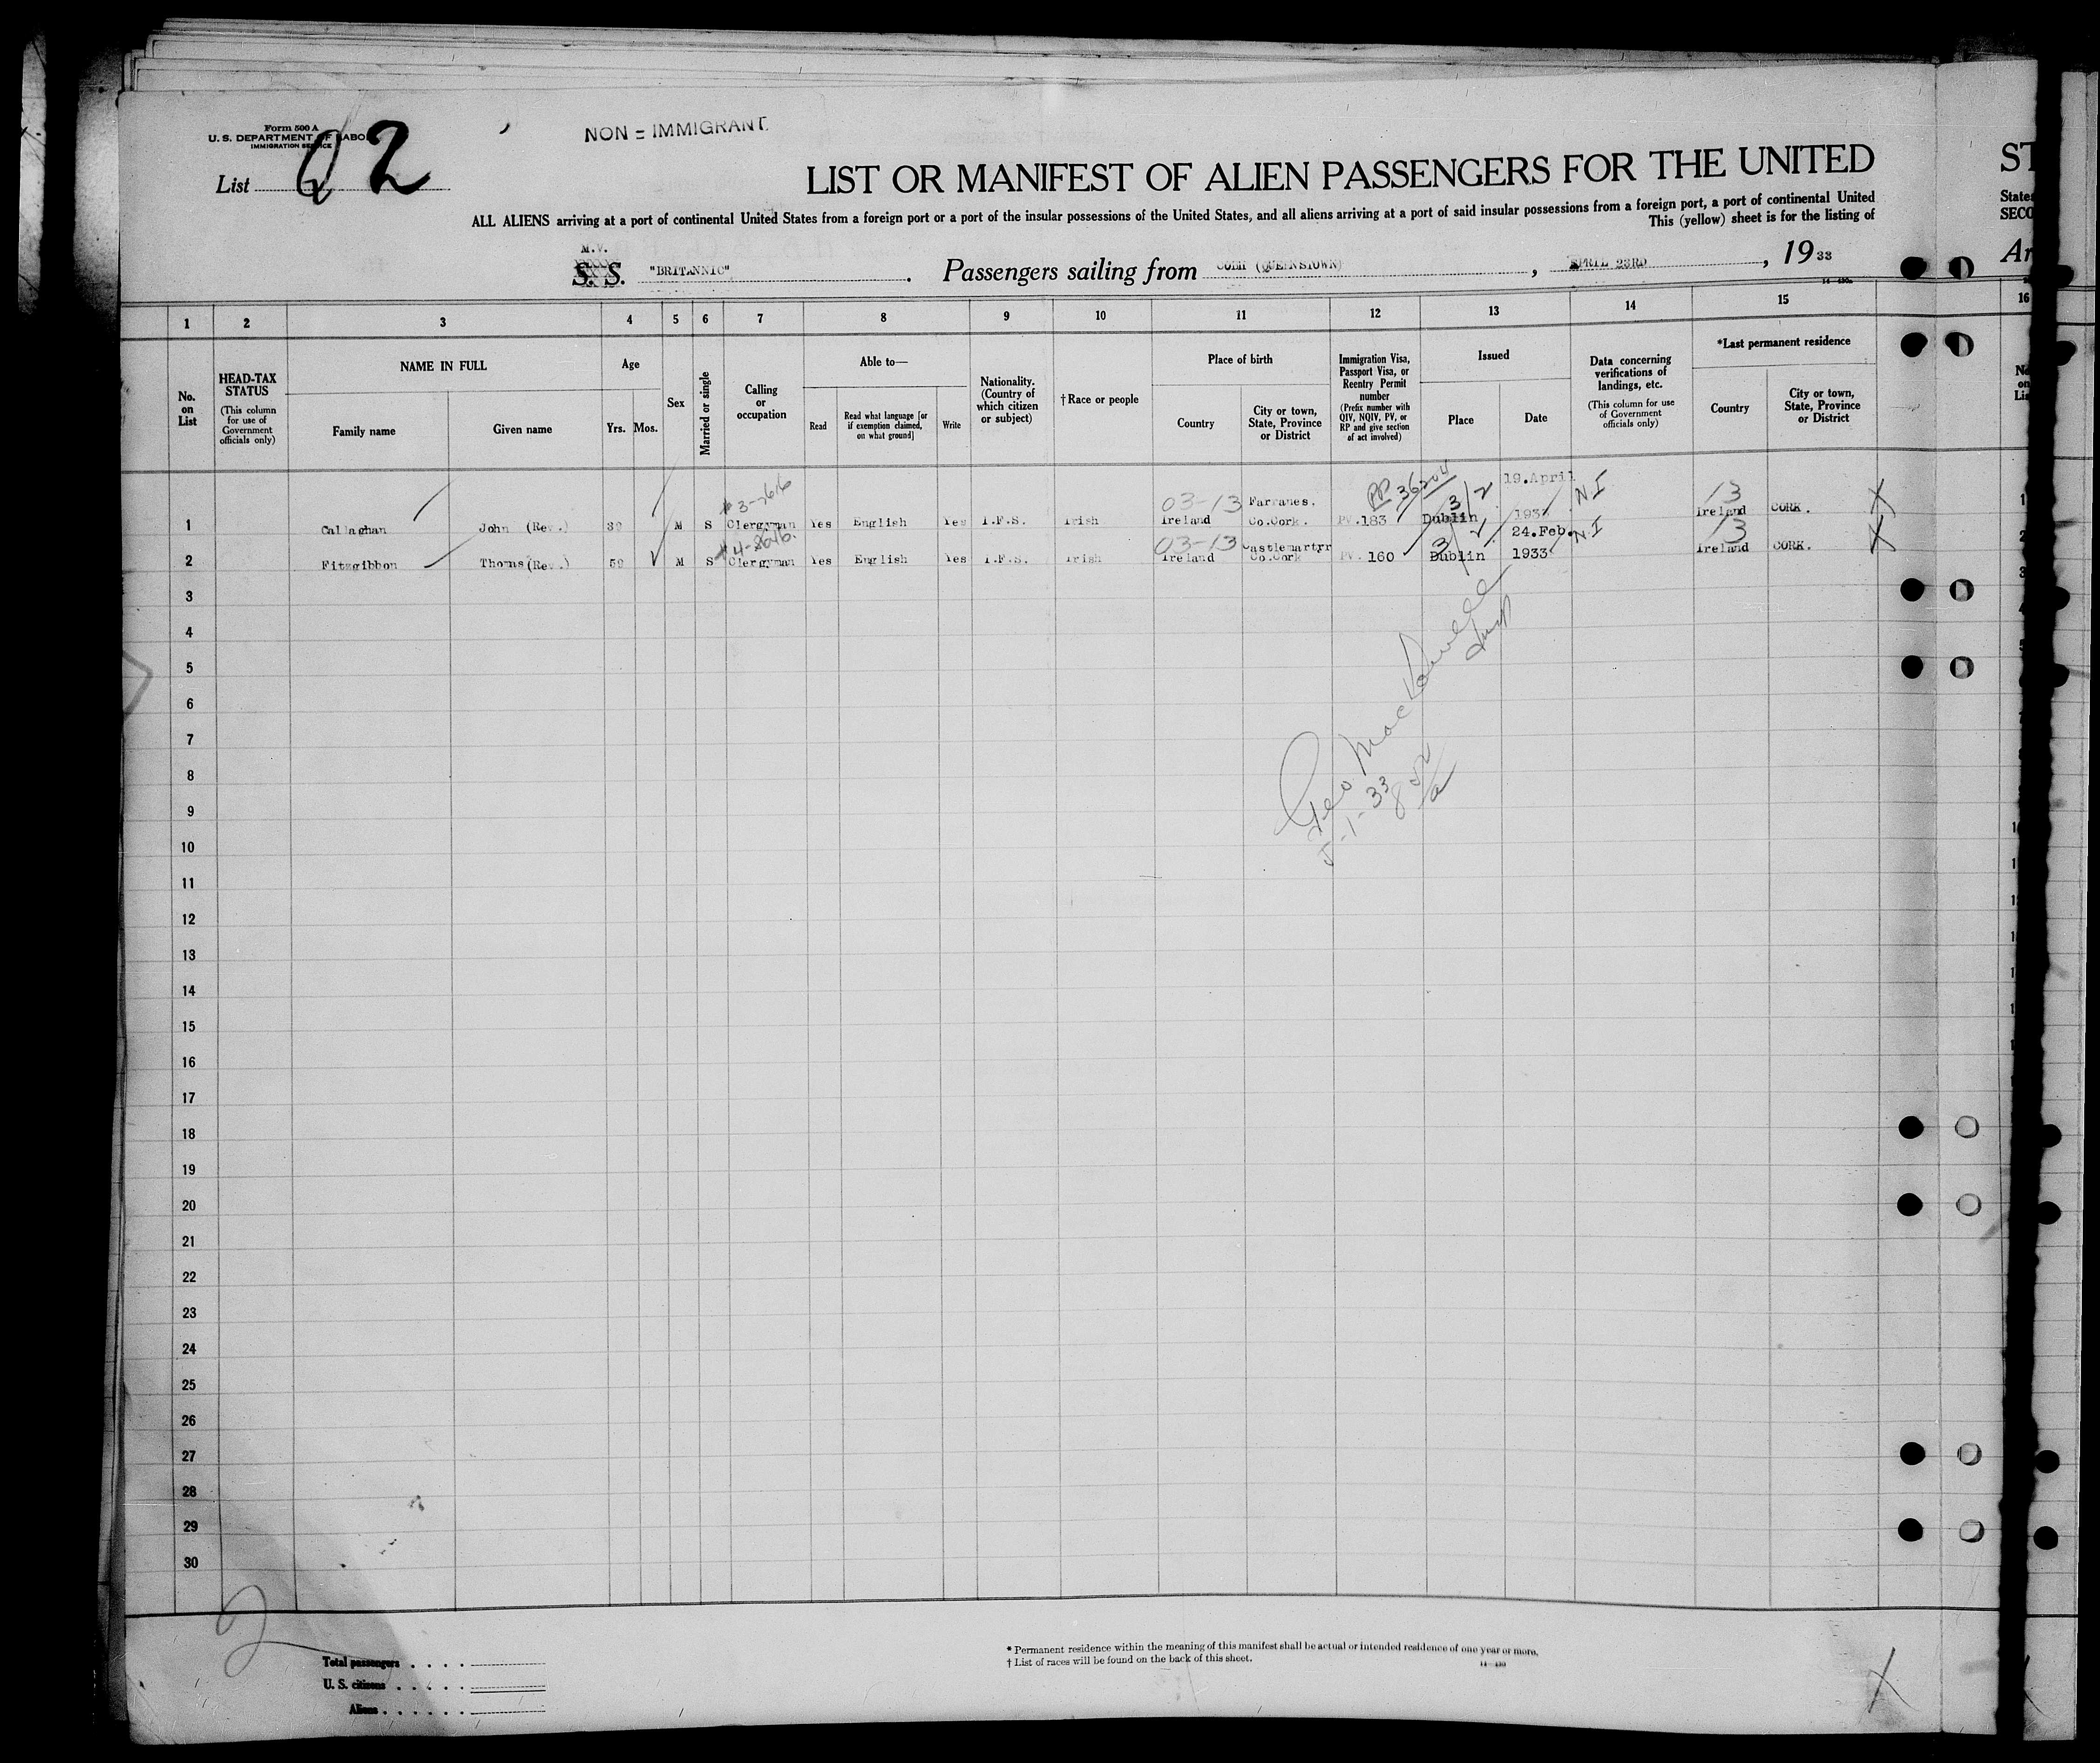 Form 500 A
U. S. DEPARTMENT OF LABOR
IMMIGRATION SERVICE
NON = IMMIGRANT
List 2
LIST OR MANIFEST OF ALIEN PASSENGERS FOR THE UNITED
ST
ALL ALIENS arriving at a port of continental United States from a foreign port or a port of the insular possessions of the United States, and all aliens arriving at a port of said insular possessions from a foreign port, a port of continental United
States
This (yellow) sheet is for the listing of
SECO
M.V.
S. S. "BRITANNIC". Passengers sailing from COBH (QUEENSTOWN), APRIL 23RD, 19 33
Ar
1 2 3 4 5 6 7 8 9 10 11 12 13 14 15 16
No. on List
HEAD-TAX STATUS (This column for use of Government officials only)
NAME IN FULL
Family name
Given name
Age
Yrs. Mos.
Sex
Married or single
Calling or occupation
Able to—
Read
Read what language [or if exemption claimed, on what ground]
Write
Nationality. (Country of which citizen or subject)
† Race or people
Place of birth
Country
City or town, State, Province or District
Immigration Visa, Passport Visa, or Reentry Permit number (Prefix number with QIV, NQIV, PV, or RP and give section of act involved)
Issued
Place
Date
Data concerning verifications of landings, etc. (This column for use of Government officials only)
*Last permanent residence
Country
City or town, State, Province or District
PP 36204 19.April
03-13 Farranes. 3/2 N.I 13
1 Callaghan John (Rev.) 39 M S Clergyman Yes English Yes I.F.S. Irish Ireland Co.Cork. PV.183 Dublin 193 Ireland CORK. X
03-13 Castlemartyr 24.Feb. N.I 13
2 Fitzgibbon Thomas (Rev.) 59 M S Clergyman Yes English Yes I.F.S. Irish Ireland Co.Cork PV. 160 Dublin 1933 Ireland CORK. X
3
4
5
6
7
8
9
10
11
12
13
14
15
16
17
18
19
20
21
22
23
24
25
26
27
28
29
30
Geo Mac
5-1-33
2
Total passengers . . . .
U. S. citizens . . . . .
Aliens . . . . . .
* Permanent residence within the meaning of this manifest shall be actual or intended residence of one year or more.
† List of races will be found on the back of this sheet.
14—430
X